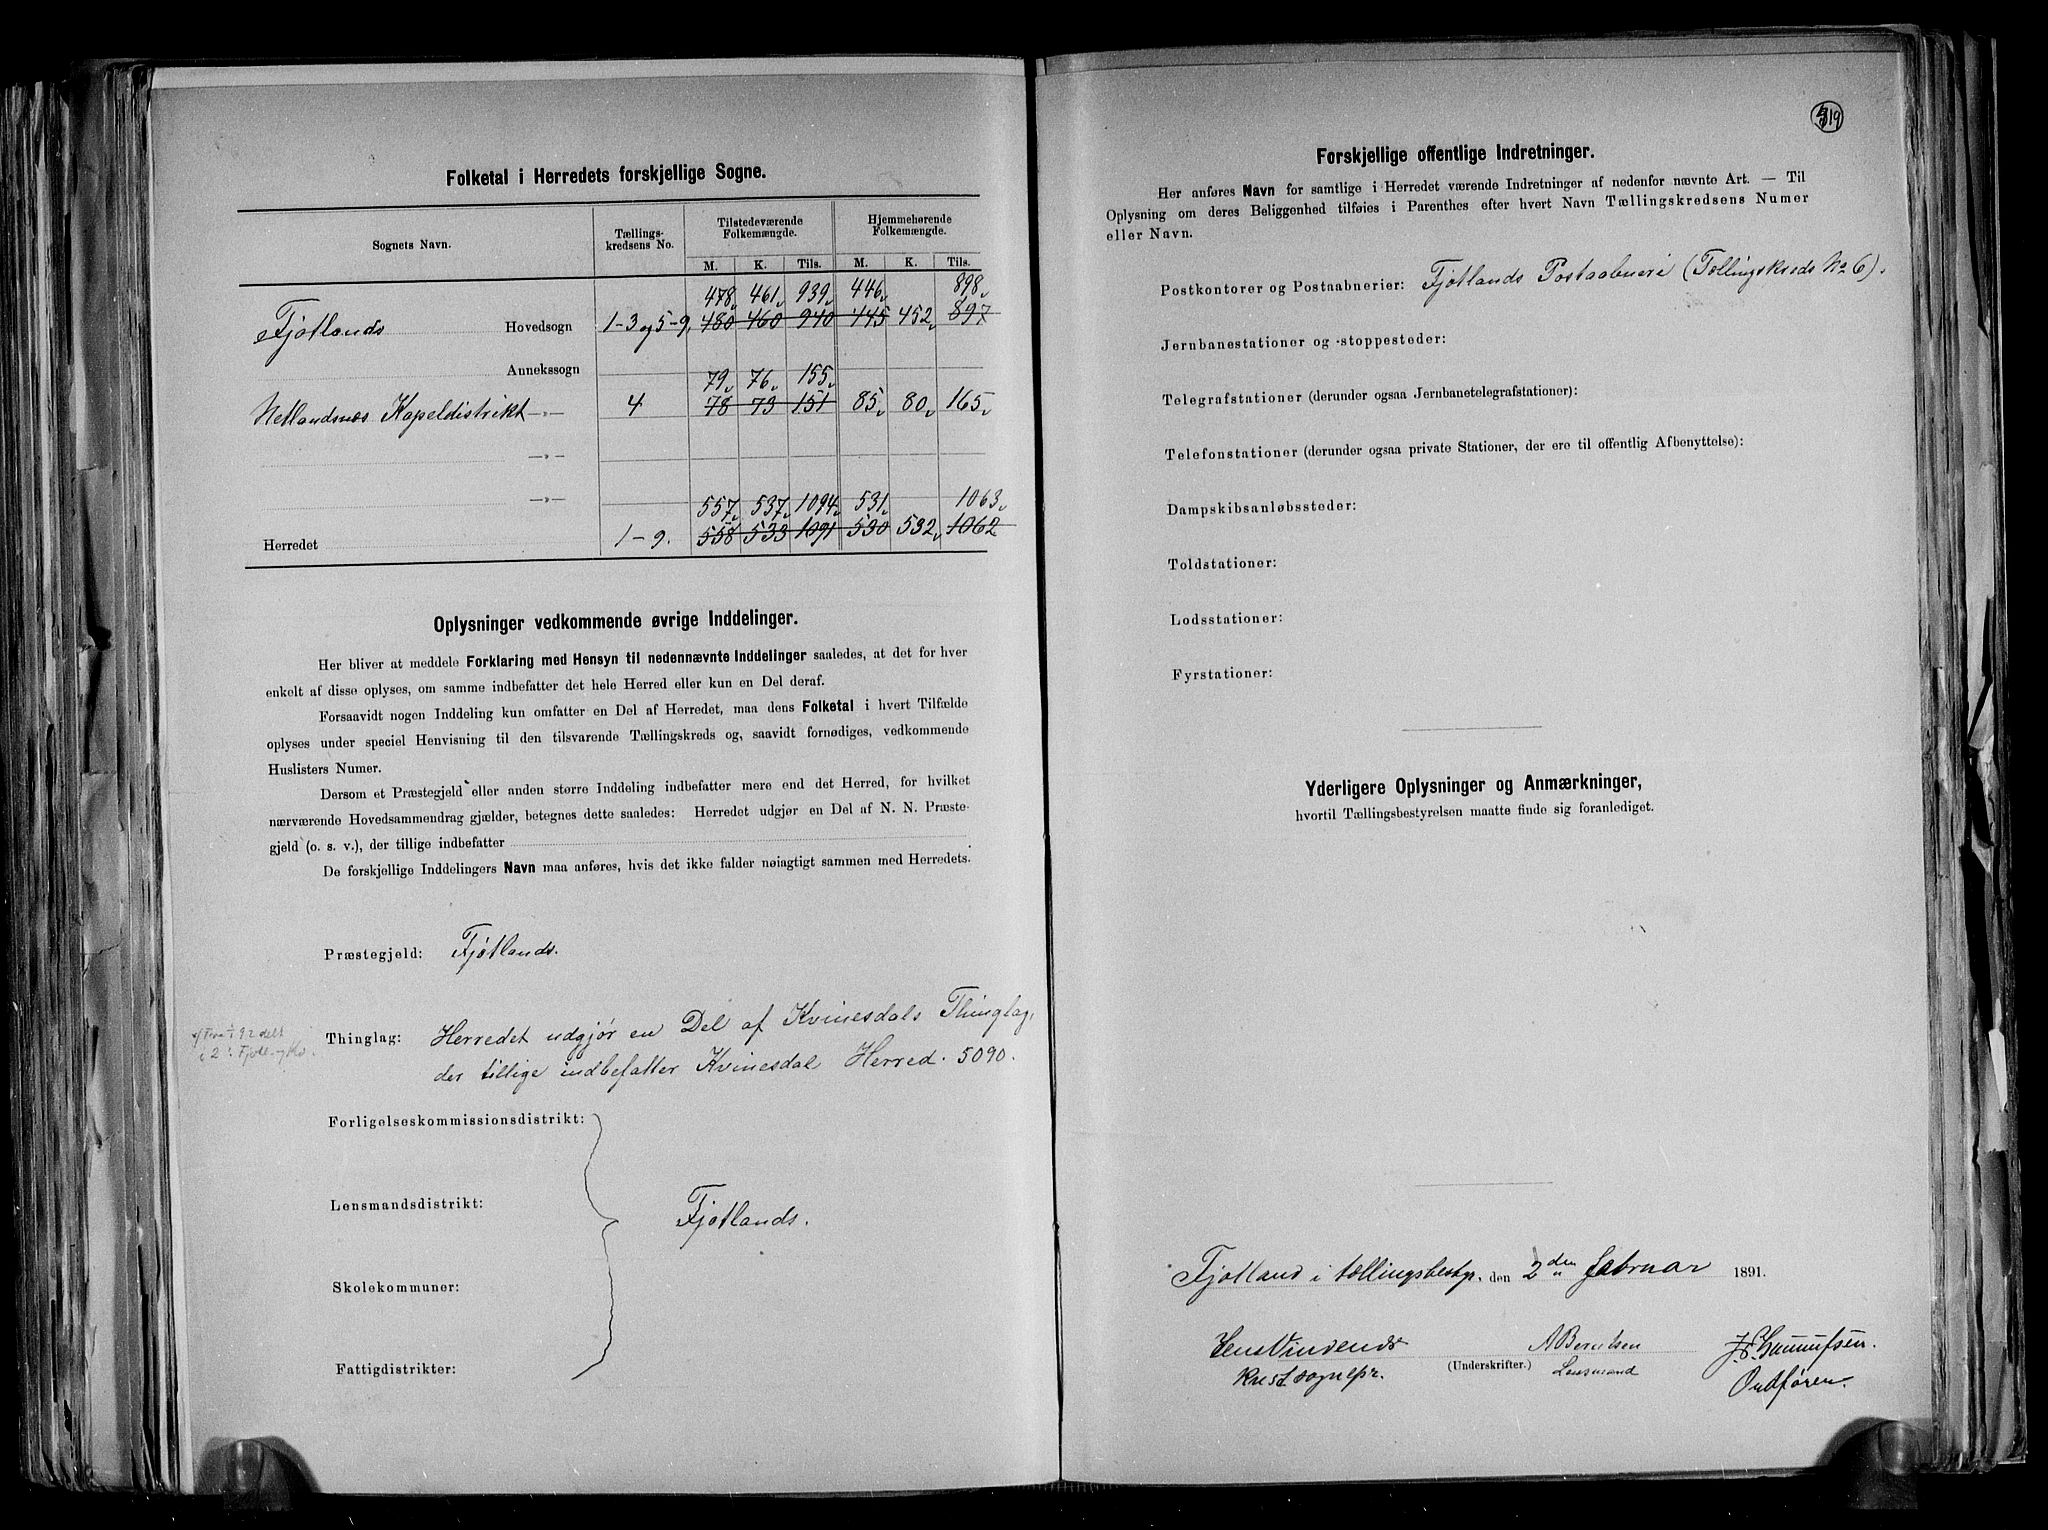 Folketal i Herredets forskjellige Sogne.
Sognets Navn.
Tællings-
kredsens No.
Tilstedeværende
Folkemængde.
Hjemmehørende
Folkemængde.
M. K. Tils. M. K. Tils.
478 461 939 446 898
Fjotlands Hovedsogn 1-3 og 5-9. 480 460 940 445 452 897
Annekssogn
79 76 155
Netlandsnæs Kapeldistrikt -„- 4 78 73 151 85 80 165
-„-
-„-
557 537 1094 531 1063
Herredet 1-9. 558 533 1091 530 532 1062
Oplysninger vedkommende øvrige Inddelinger.
Her bliver at meddele Forklaring med Hensyn til nedennævnte Inddelinger saaledes, at det for hver
enkelt af disse oplyses, om samme indbefatter det hele Herred eller kun en Del deraf.
Forsaavidt nogen Inddeling kun omfatter en Del af Herredet, maa dens Folketal i hvert Tilfælde
oplyses under speciel Henvisning til den tilsvarende Tællingskreds og, saavidt fornødiges, vedkommende
Huslisters Numer.
Dersom et Præstegjeld eller anden større Inddeling indbefatter mere end det Herred, for hvilket
nærværende Hovedsammendrag gjælder, betegnes dette saaledes: Herredet udgjør en Del af N. N. Præste-
gjeld (o. s. v.), der tillige indbefatter
De forskjellige Inddelingers Navn maa anføres, hvis det ikke falder nøiagtigt sammen med Herredets.
Præstegjeld: Fjotlands.
Thinglag: Herredet udgjør en Del af Kvinesdals Thinglag,
der tillige indbefatter Kvinesdal Herred. 5090.
Forligelseskommissionsdistrikt:
Lensmandsdistrikt:
Fjotlands.
Skolekommuner:
Fattigdistrikter:
319
Forskjellige offentlige Indretninger.
Her anføres Navn for samtlige i Herredet værende Indretninger af nedenfor nævnte Art. — Til
Oplysning om deres Beliggenhed tilføies i Parenthes efter hvert Navn Tællingskredsens Numer
eller Navn.
Postkontorer og Postaabnerier: Fjotlands Postaabneri (Tællingskreds No 6).
Jernbanestationer og -stoppesteder:
Telegrafstationer (derunder ogsaa Jernbanetelegrafstationer):
Telefonstationer (derunder ogsaa private Stationer, der ere til offentlig Afbenyttelse):
Dampskibsanløbssteder:
Toldstationer:
Lodsstationer:
Fyrstationer:
Yderligere Oplysninger og Anmærkninger,
hvortil Tællingsbestyrelsen maatte finde sig foranlediget.
Fjotland i tællingsbestyr. den 2den februar 1891.
(Underskrifter.)
A Berntsen
Lensmand